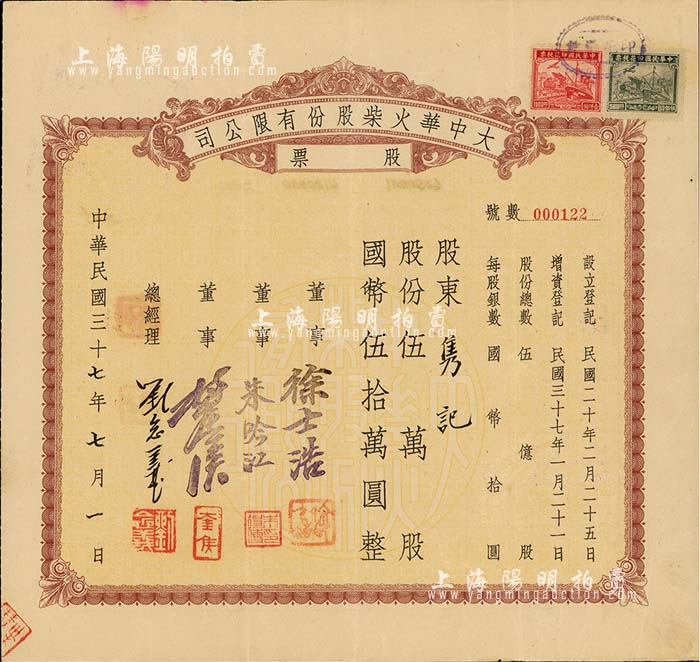 上海陽明拍賣
www.yangmingauction.com
中華民國印花稅票
中華民國印花稅票
大中華火柴股份有限公司
股票
號數 000122
設立登記 民國二十年二月二十五日
增資登記 民國三十七年一月二十一日
股份總數 伍億股
每股銀數 國幣拾圓
股東 雋記
股份伍萬股
國幣伍拾萬圓整
董事 徐士浩
董事 朱吟江
董事
總經理 劉念義
中華民國三十七年七月一日
上海陽明拍賣
www.yangmingauction.com
上海陽明拍賣
www.yangmingauction.com